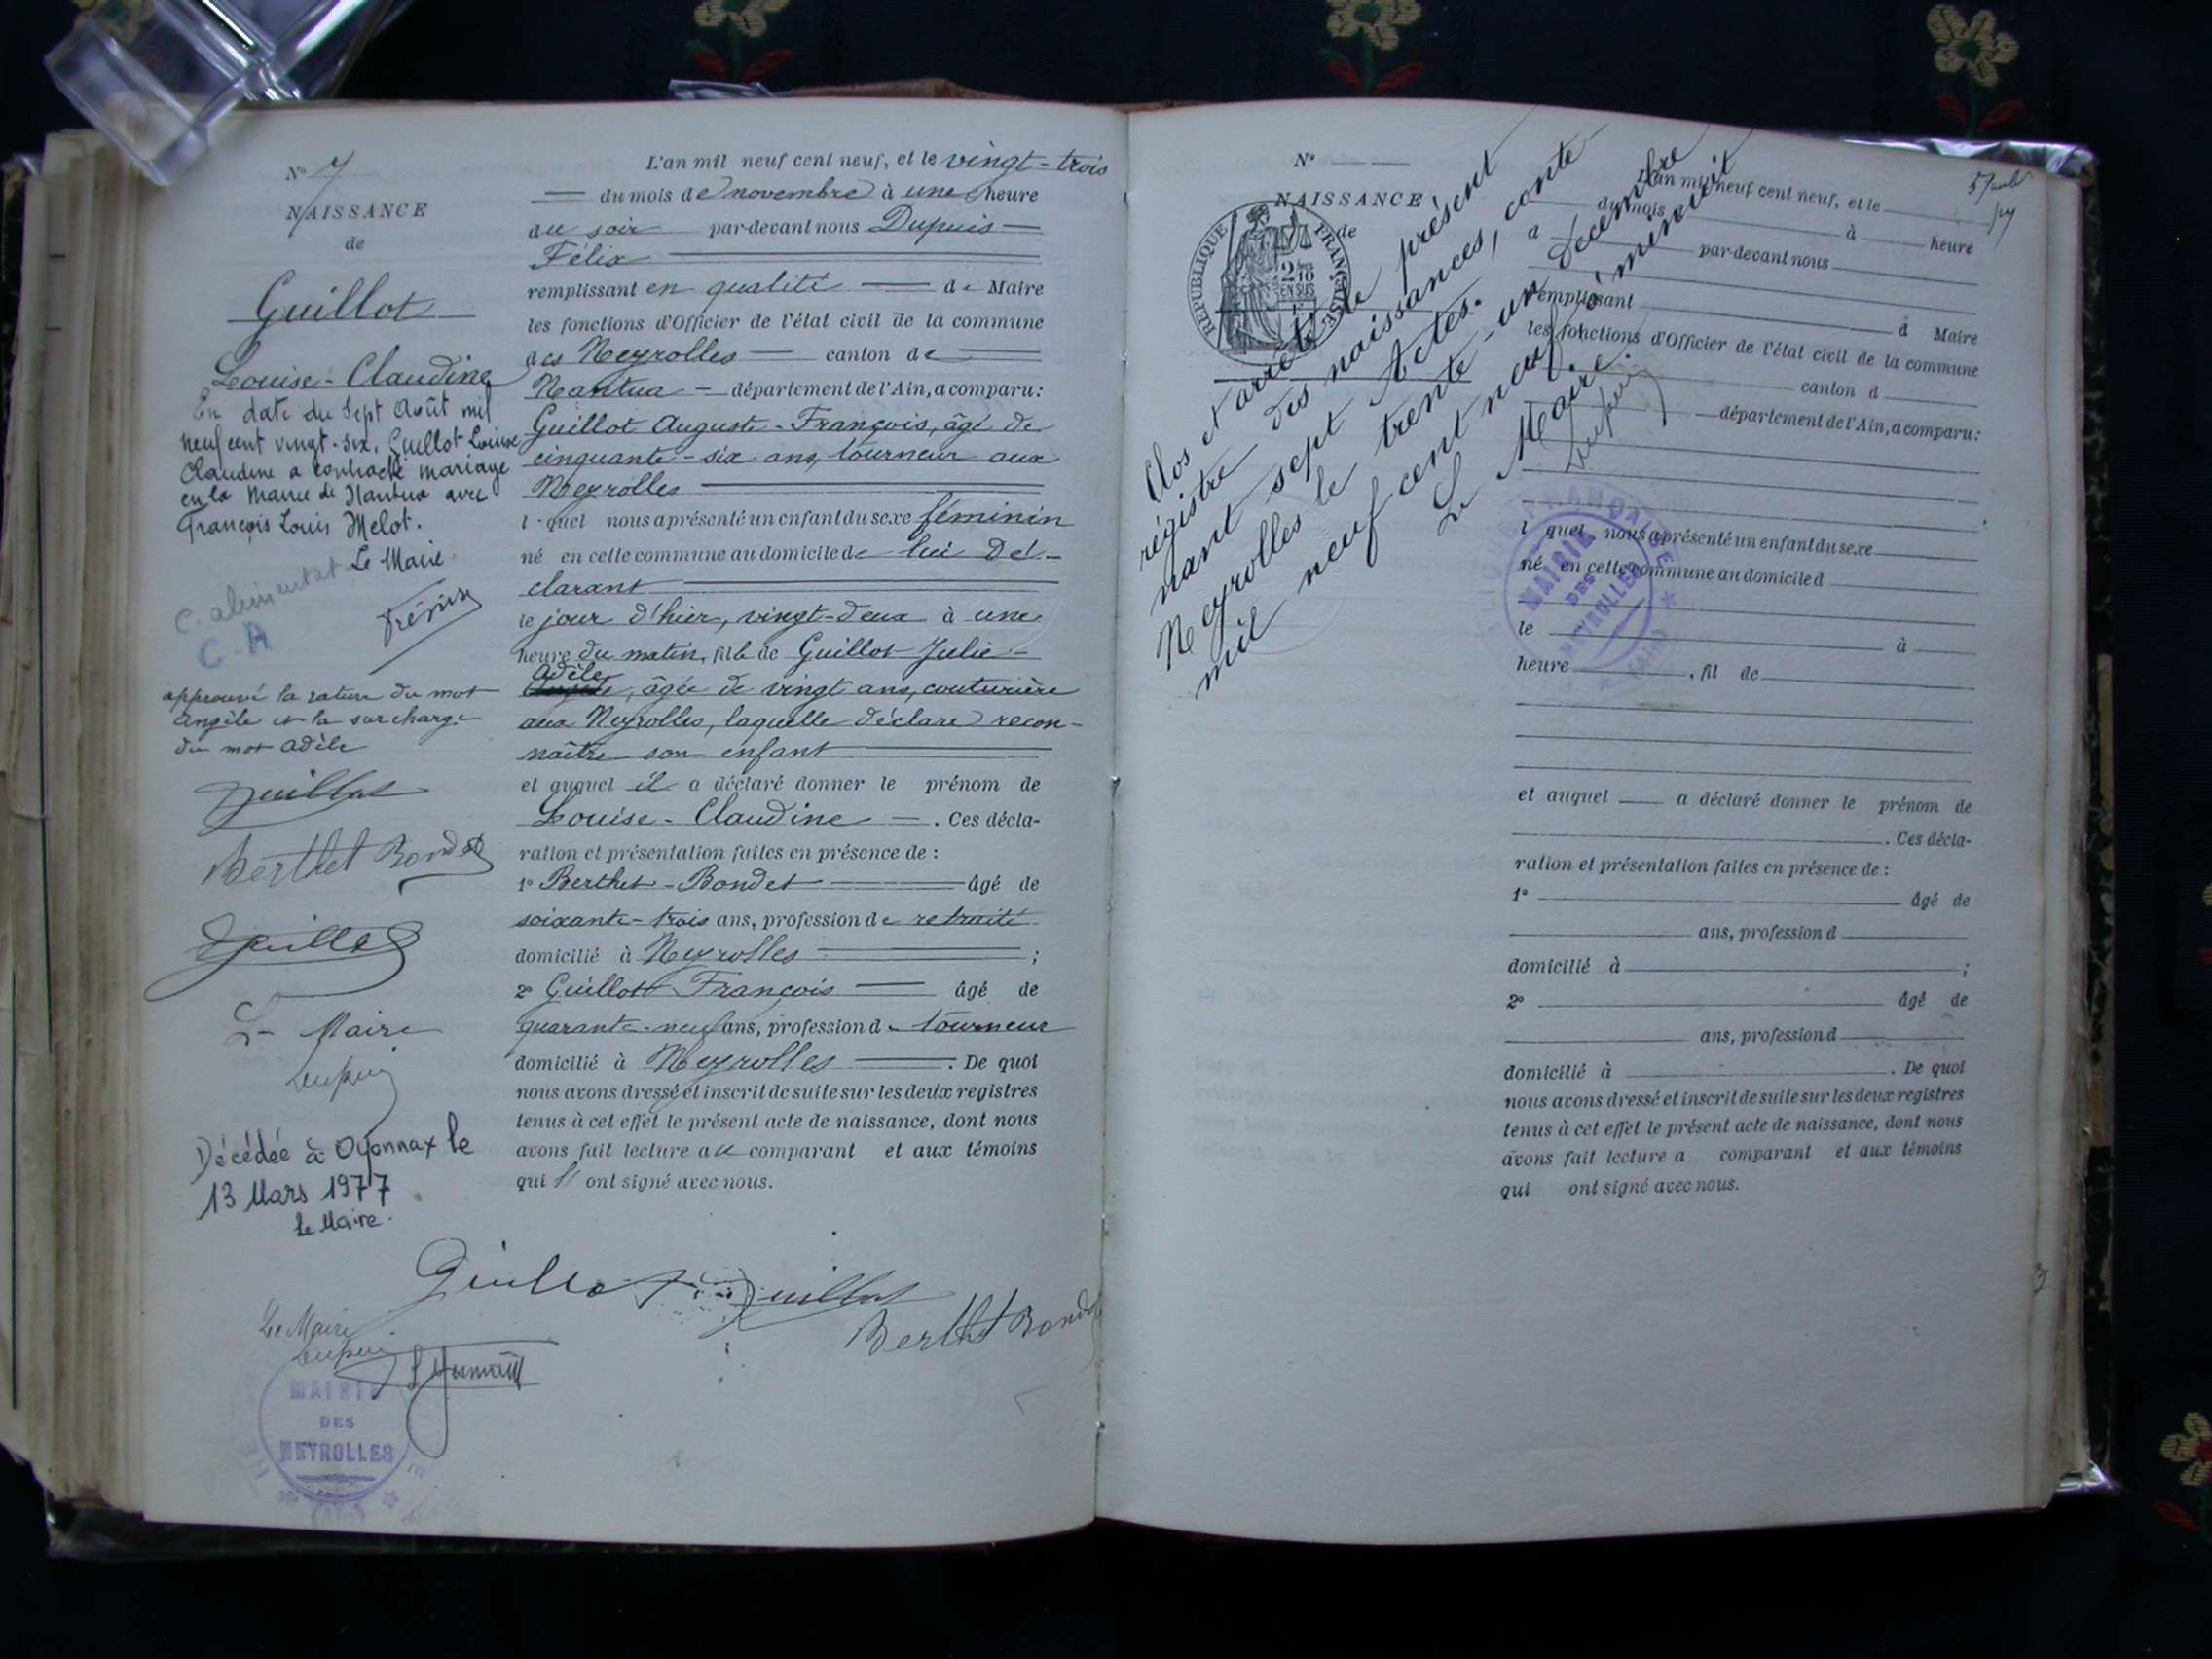 N° 7
NAISSANCE
de
Guillot
Louise-Claudine
En date du Sept Août mil
neuf cent vingt-six, Guillot Louise
Claudine a contracté mariage
en la Mairie de Nantua avec
François Louis Melot.
Le Maire.
C. alimentat
C.A
approuvé la rature du mot
angèle et la surcharge
du mot adèle
Guillot
Berthet Bondet
Guillot
Le Maire
Dupuis
Décédée à Oyonnax le
13 Mars 1977
Le Maire.
L'an mil neuf cent neuf, et le vingt-trois
— du mois de novembre à une heure
du soir par-devant nous Dupuis —
Félix
remplissant en qualité — de Maire
les fonctions d'Officier de l'état civil de la commune
des Neyrolles — canton de
Nantua — département de l'Ain, a comparu:
Guillot Auguste-François, âgé de
cinquante-six ans, tourneur aux
Neyrolles
lequel nous a présenté un enfant du sexe féminin
né en cette commune au domicile de lui dé-
clarant
le jour d'hier, vingt-deux à une
heure du matin, fille de Guillot Julie-
Adèle
, âgée de vingt ans, couturière
aux Neyrolles, laquelle déclare recon-
naître son enfant
et auquel il a déclaré donner le prénom de
Louise-Claudine —. Ces décla-
ration et présentation faites en présence de :
1° Berthet-Bondet — âgé de
soixante-trois ans, profession de retraité
domicilié à Neyrolles — ;
2° Guillot François — âgé de
quarante-neuf ans, profession de tourneur
domicilié à Neyrolles —. De quoi
nous avons dressé et inscrit de suite sur les deux registres
tenus à cet effet le présent acte de naissance, dont nous
avons fait lecture au comparant et aux témoins
qui ont signé avec nous.
Guillot Guillot
Berthet Bondet
Le Maire
Dupuis
MAIRIE
DES
NEYROLLES
N° —
NAISSANCE
de
RÉPUBLIQUE FRANÇAISE
2/10
EN SUS
Clos et arrêté le présent
régistre des naissances, conte-
nant sept Actes.
Neyrolles le trente-un décembre
mil neuf cent neuf à minuit
Le Maire.
Dupuis
L'an mil neuf cent neuf, et le
du mois à heure
d par-devant nous
remplissant d Maire
les fonctions d'Officier de l'état civil de la commune
canton d
département de l'Ain, a comparu:
l quel nous a présenté un enfant du sexe
né en cette commune au domicile d
le à
heure , fil de
et auquel a déclaré donner le prénom de
. Ces décla-
ration et présentation faites en présence de :
1° âgé de
ans, profession d
domicilié à ;
2° âgé de
ans, profession d
domicilié à . De quoi
nous avons dressé et inscrit de suite sur les deux registres
tenus à cet effet le présent acte de naissance, dont nous
avons fait lecture a comparant et aux témoins
qui ont signé avec nous.
MAIRIE
DES
NEYROLLES
(AIN)